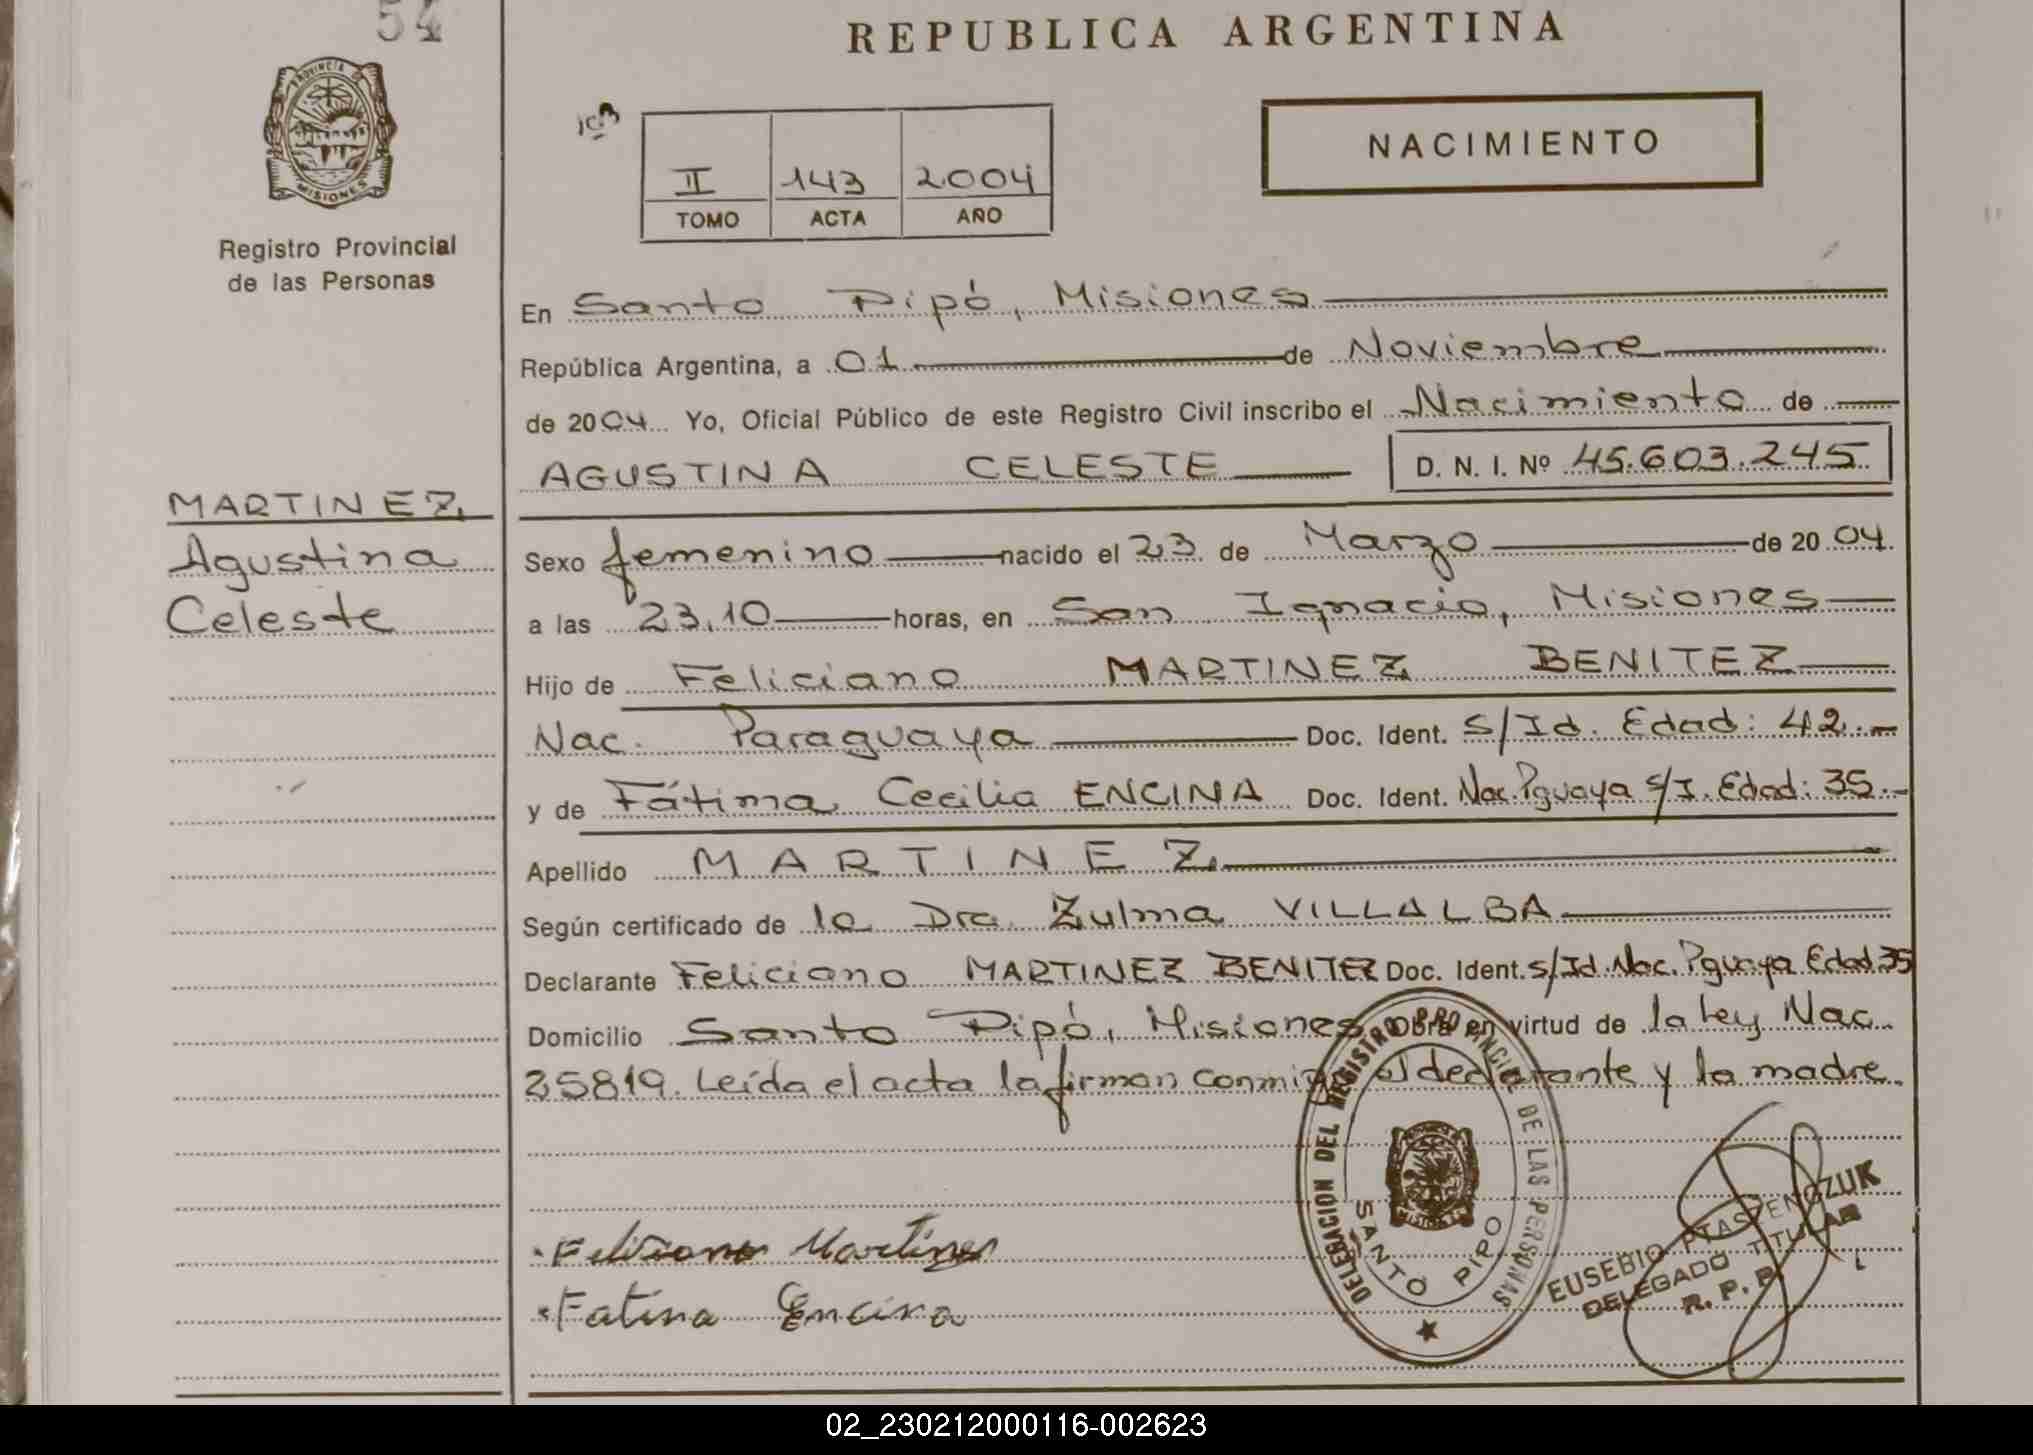 54
REPUBLICA ARGENTINA
PROVINCIA DE
MISIONES
Registro Provincial
de las Personas
NACIMIENTO
II 143 2004
TOMO ACTA AÑO
En Santo Pipó, Misiones
República Argentina, a 01 de Noviembre
de 2004 Yo, Oficial Público de este Registro Civil inscribo el Nacimiento de
AGUSTINA CELESTE D. N. I. Nº 45.603.245
MARTINEZ,
Agustina
Celeste
Sexo femenino nacido el 23 de Marzo de 2004.
a las 23,10 horas, en San Ignacio, Misiones
Hijo de Feliciano MARTINEZ BENITEZ
Nac. Paraguaya Doc. Ident. S/Id. Edad: 42.-
y de Fátima Cecilia ENCINA Doc. Ident. Nac. Pguaya S/I. Edad: 35.-
Apellido MARTINEZ.
Según certificado de la Dra. Zulma VILLALBA
Declarante Feliciano MARTINEZ BENITEZ Doc. Ident. S/Id. Nac. Pguaya Edad 35
Domicilio Santo Pipó, Misiones Obra en virtud de la Ley Nac.
25819. Leída el acta la firman conmigo el declarante y la madre.
DELEGACION DEL REGISTRO PROVINCIAL DE LAS PERSONAS
SANTO PIPO
Feliciano Martinez
Fatina Encina
EUSEBIO PTASZENCZUK
DELEGADO TITULAR
R. P. P.
02_230212000116-002623